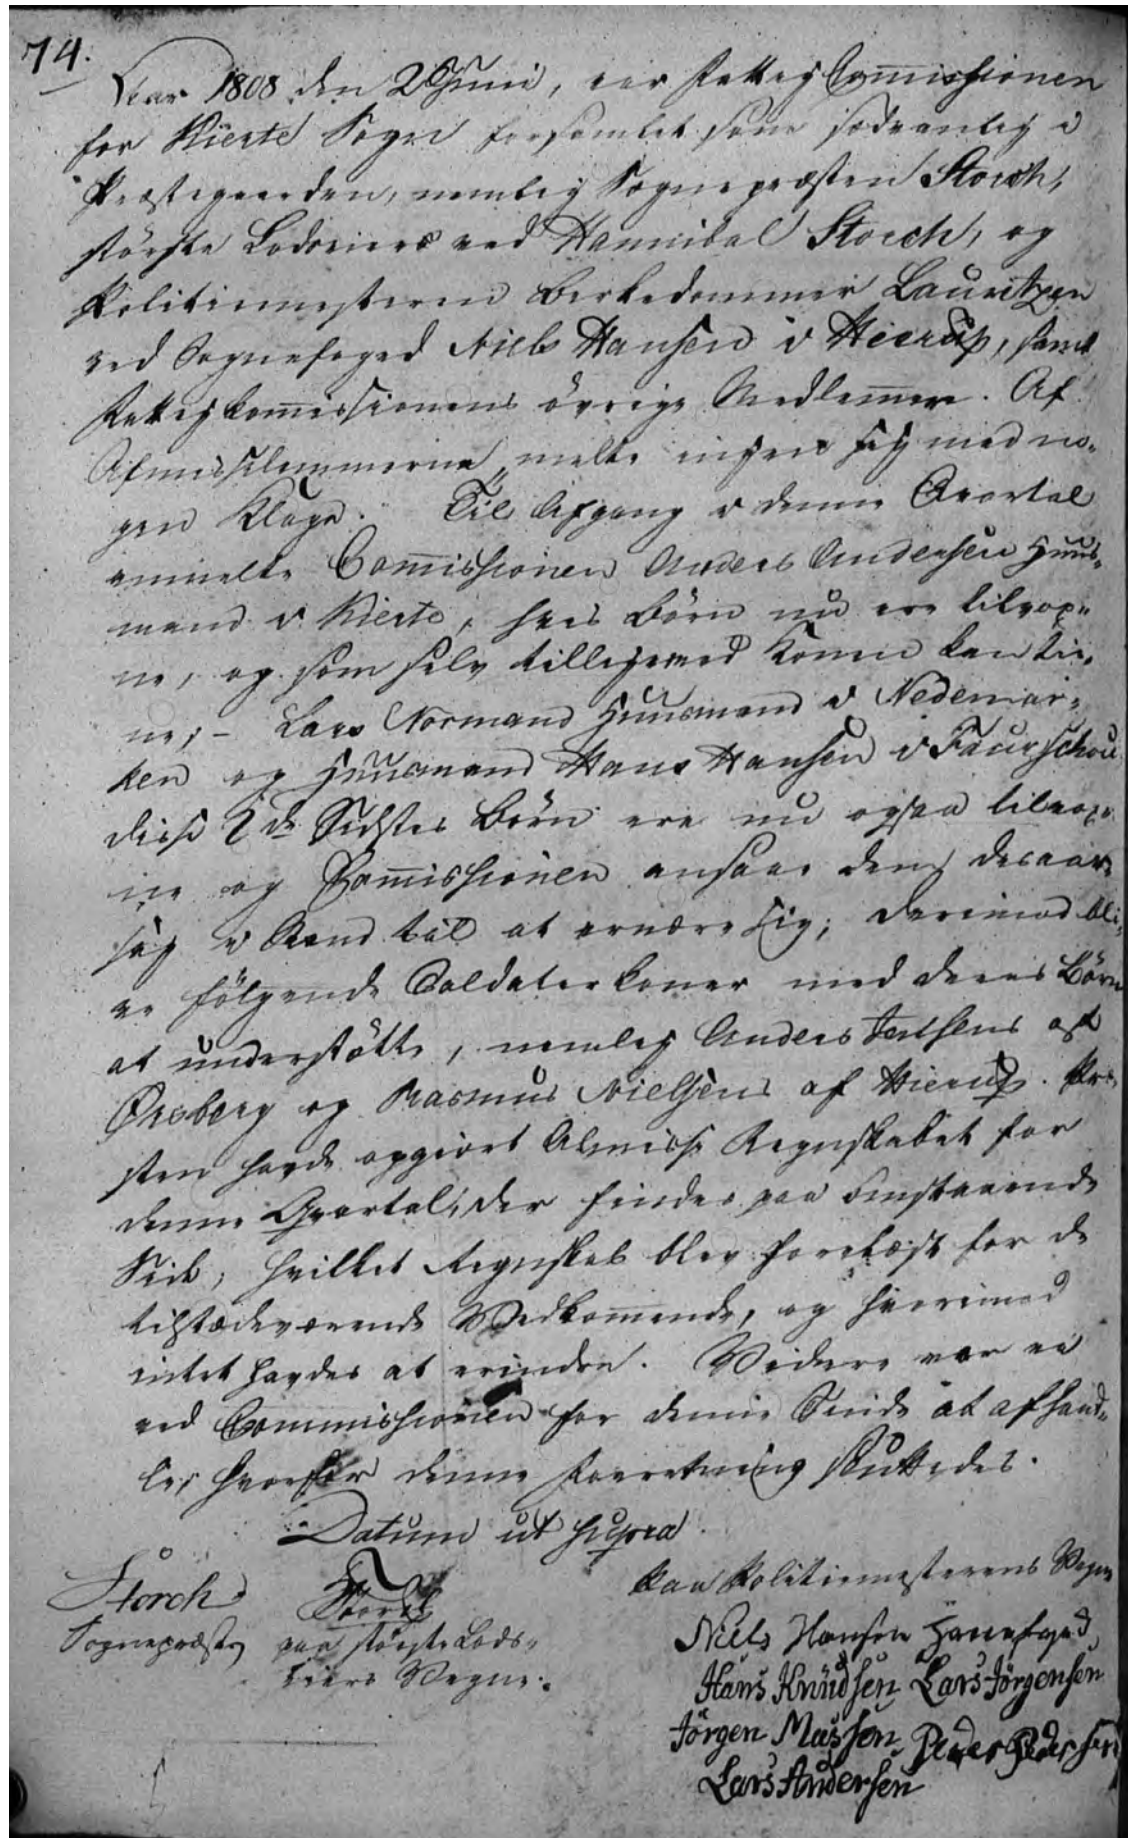 74.
Aar 1808 den 2 Juni, var Fattig Commissionen
for Kierte Sogn forsamlet som sædvanlig i
Præstegaarden, nemlig Sognepræsten Storch,
største Lodseiere ved Hannibal Storch, og
Politiemesteren Birkedommer Lauritzen
ved Sognefoged Niels Hansen i Hierup, samt
Fattigkomissionens övrige Medlemer. Af
Almisselemmerne melte ingen sig med no-
gen Klage. Til Afgang i denne Qvartal
anmelte Comissionen Anders Andersen Huus-
mand i Kierte, hvis Börn nu ere tilvox-
ne, og som selv tilligemed Konen kan tie-
ne; - Lars Normand Huusmand i Nedemar-
ken og Huusmand Hans Hansen i Faurschou
disse 2de Sidstes Börn ere nu ogsaa tilvox-
ne og Comissionen ansaae dem desaar-
sag i Stand til at ernære sig; derimod bli-
ve fölgende Soldaterkoner med deres Börn
at understötte, nemlig Anders Jensens af
Örsberg og Rasmus Nielsens af Hierup. Præ-
sten havde opgiort Almisse Regnskabet for
denne Qvartal, der findes paa omstaaende
Side, hvilket Regnskab blev forelæst for de
tilstædeværende Vedkomende, og hvorimod
intet havdes at erindre. Videre var ei
ved Commissionen for denne Sinde at afhand-
le, hvorfor denne Forretning sluttedes.
Datum ut supra.
Storch
Sognepræst
Storch
paa störste Lods-
eiers Vegne.
Paa Politiemesterens Vegne
Niels Hansen
Hans Knudsen Lars Jörgensen
Jörgen Massen Peder Pedersen
Lars Andersen